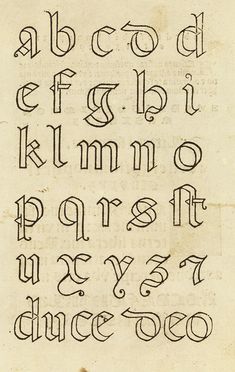 a b c d d
e f g h i
k l m n o
p q r s ſt
u x y z ⁊
duce deo